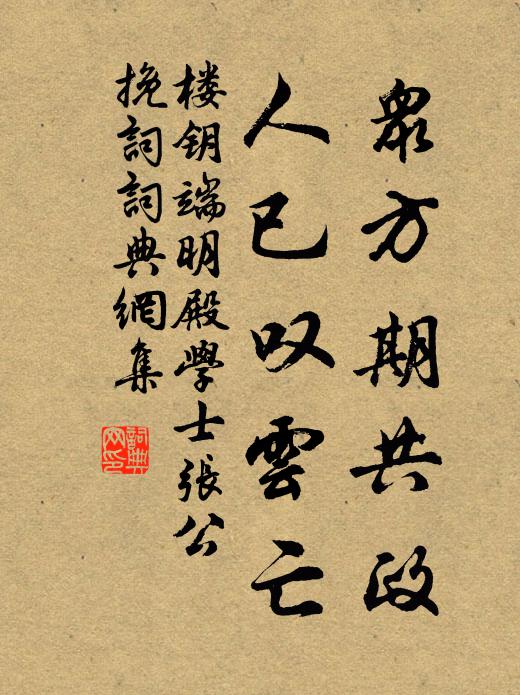 眾方期共政
人已叹雲亡
楼钥端明殿學士張公
挽詞詞典網集
詞典
网印